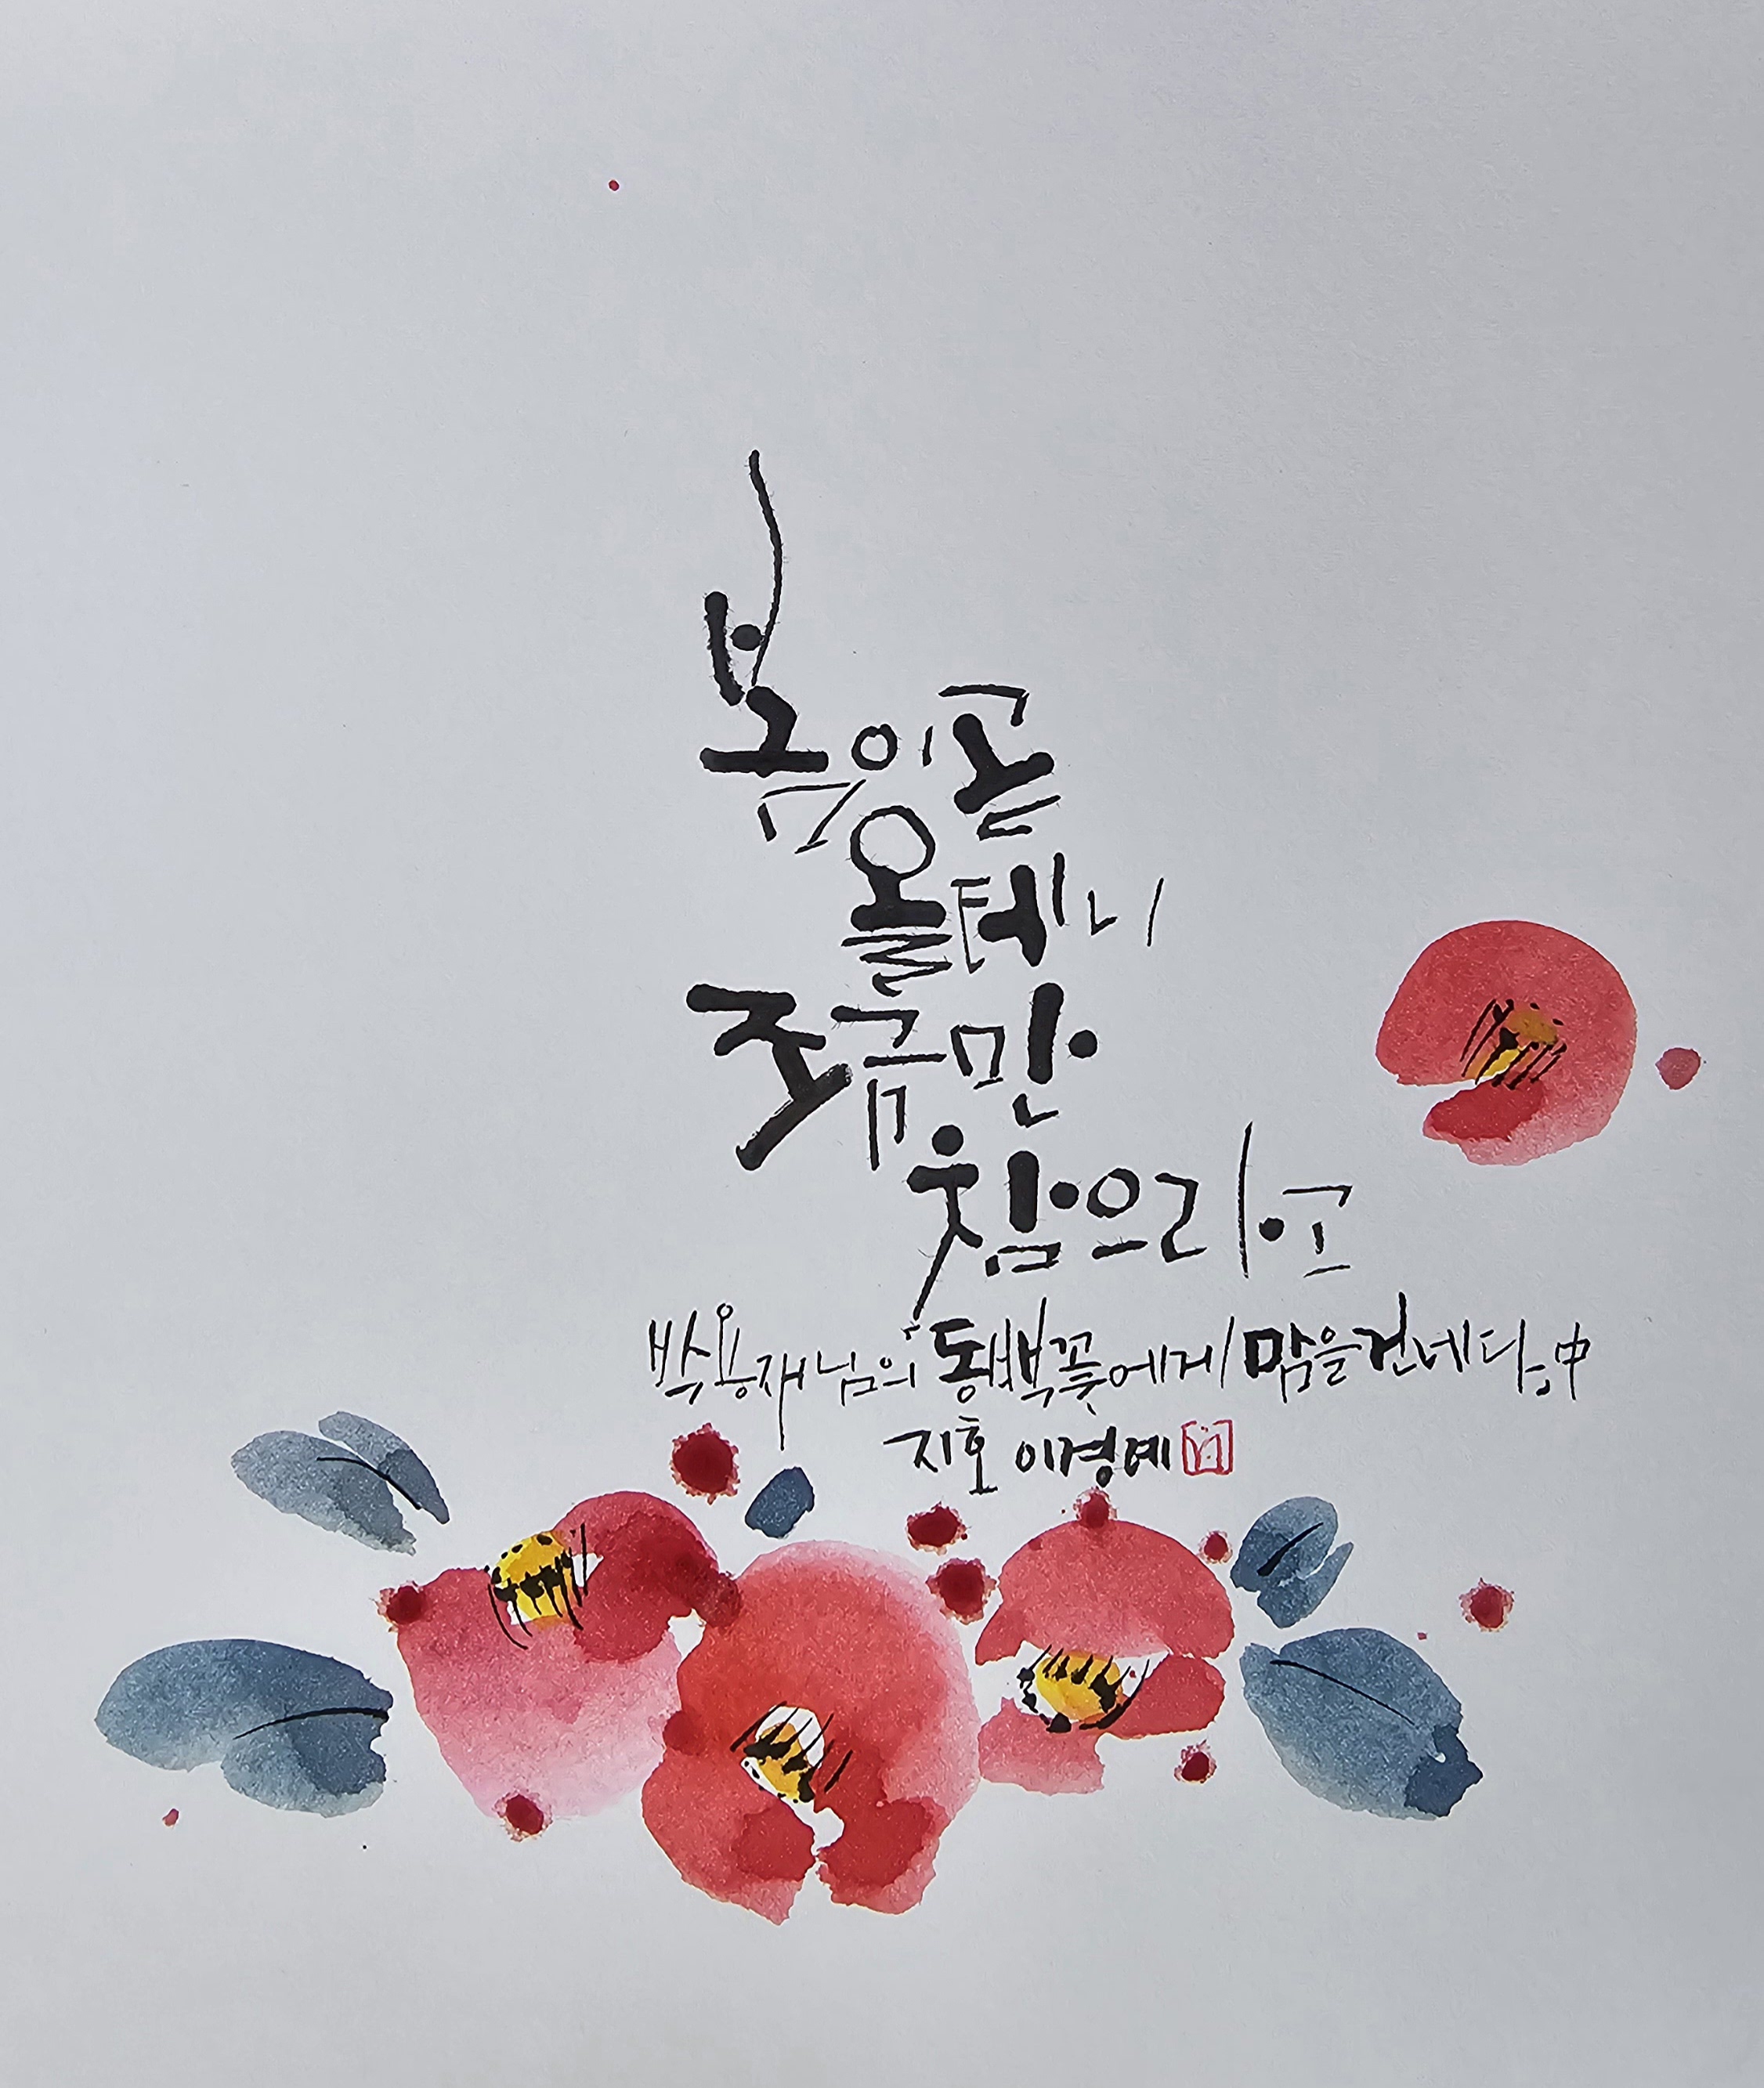 봄이 곧
올테니
조금만
참으라고
박용재님의 동백꽃에게 맘을 건네다.中
지호 이경예